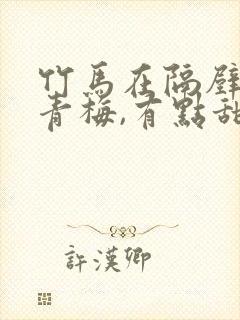 竹馬在隔壁
青梅,有點甜
許漢卿